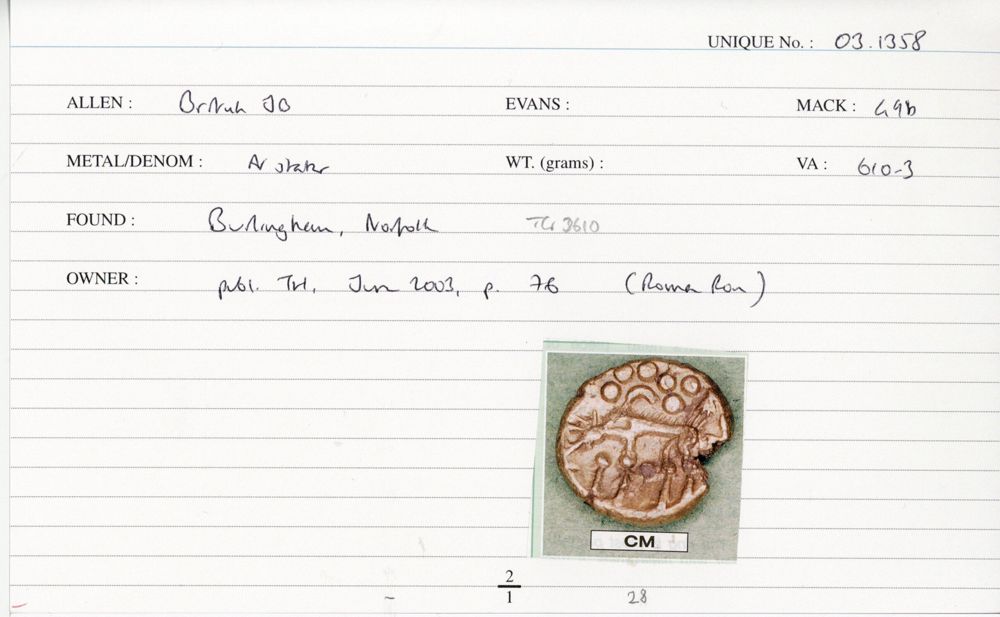 UNIQUE No. : 03.1358
ALLEN : British JB EVANS : MACK : 49b
METAL/DENOM : AV stater WT. (grams) : VA : 610-3
FOUND : Burlingham, Norfolk TG 3610
OWNER : publ. TH, June 2003, p. 76 (Roman Ron)
CM
2
1 28